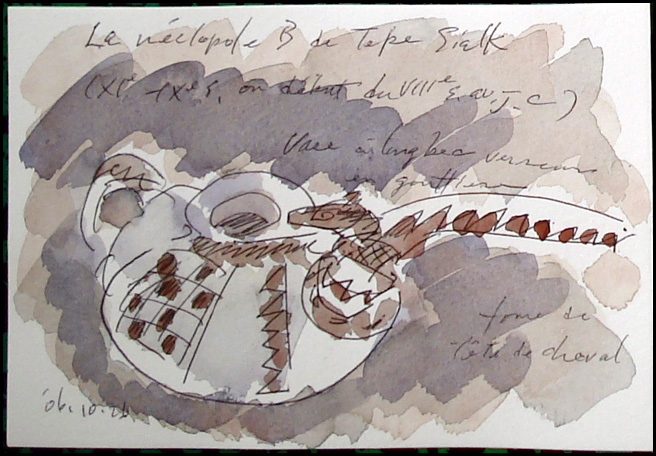 La nécropole B de Tepe Sialk
(XIe - IXe s. ou début du VIIIe s. av. J-C)
Vase à long bec verseur
en gouttière
forme de
tête de cheval
'06.10.26